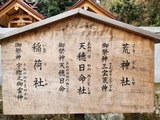 荒神社
御祭神 三宝荒神
天穂日命社
御祭神 天穂日命
稲荷社
御祭神 宇迦之御霊神